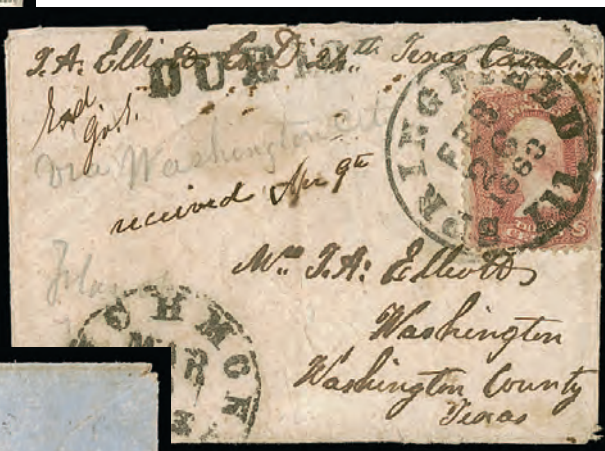 J. A. Elliotts Co. D. 24th Texas Cavalry
DUE 10
End.
Gust.
via Washington
received Apr 9th
SPRINGFIELD ILL.
FEB
20
1863
Mrs J. A. Elliotts
Washington
Washington County
Texas
CHMON
MAR